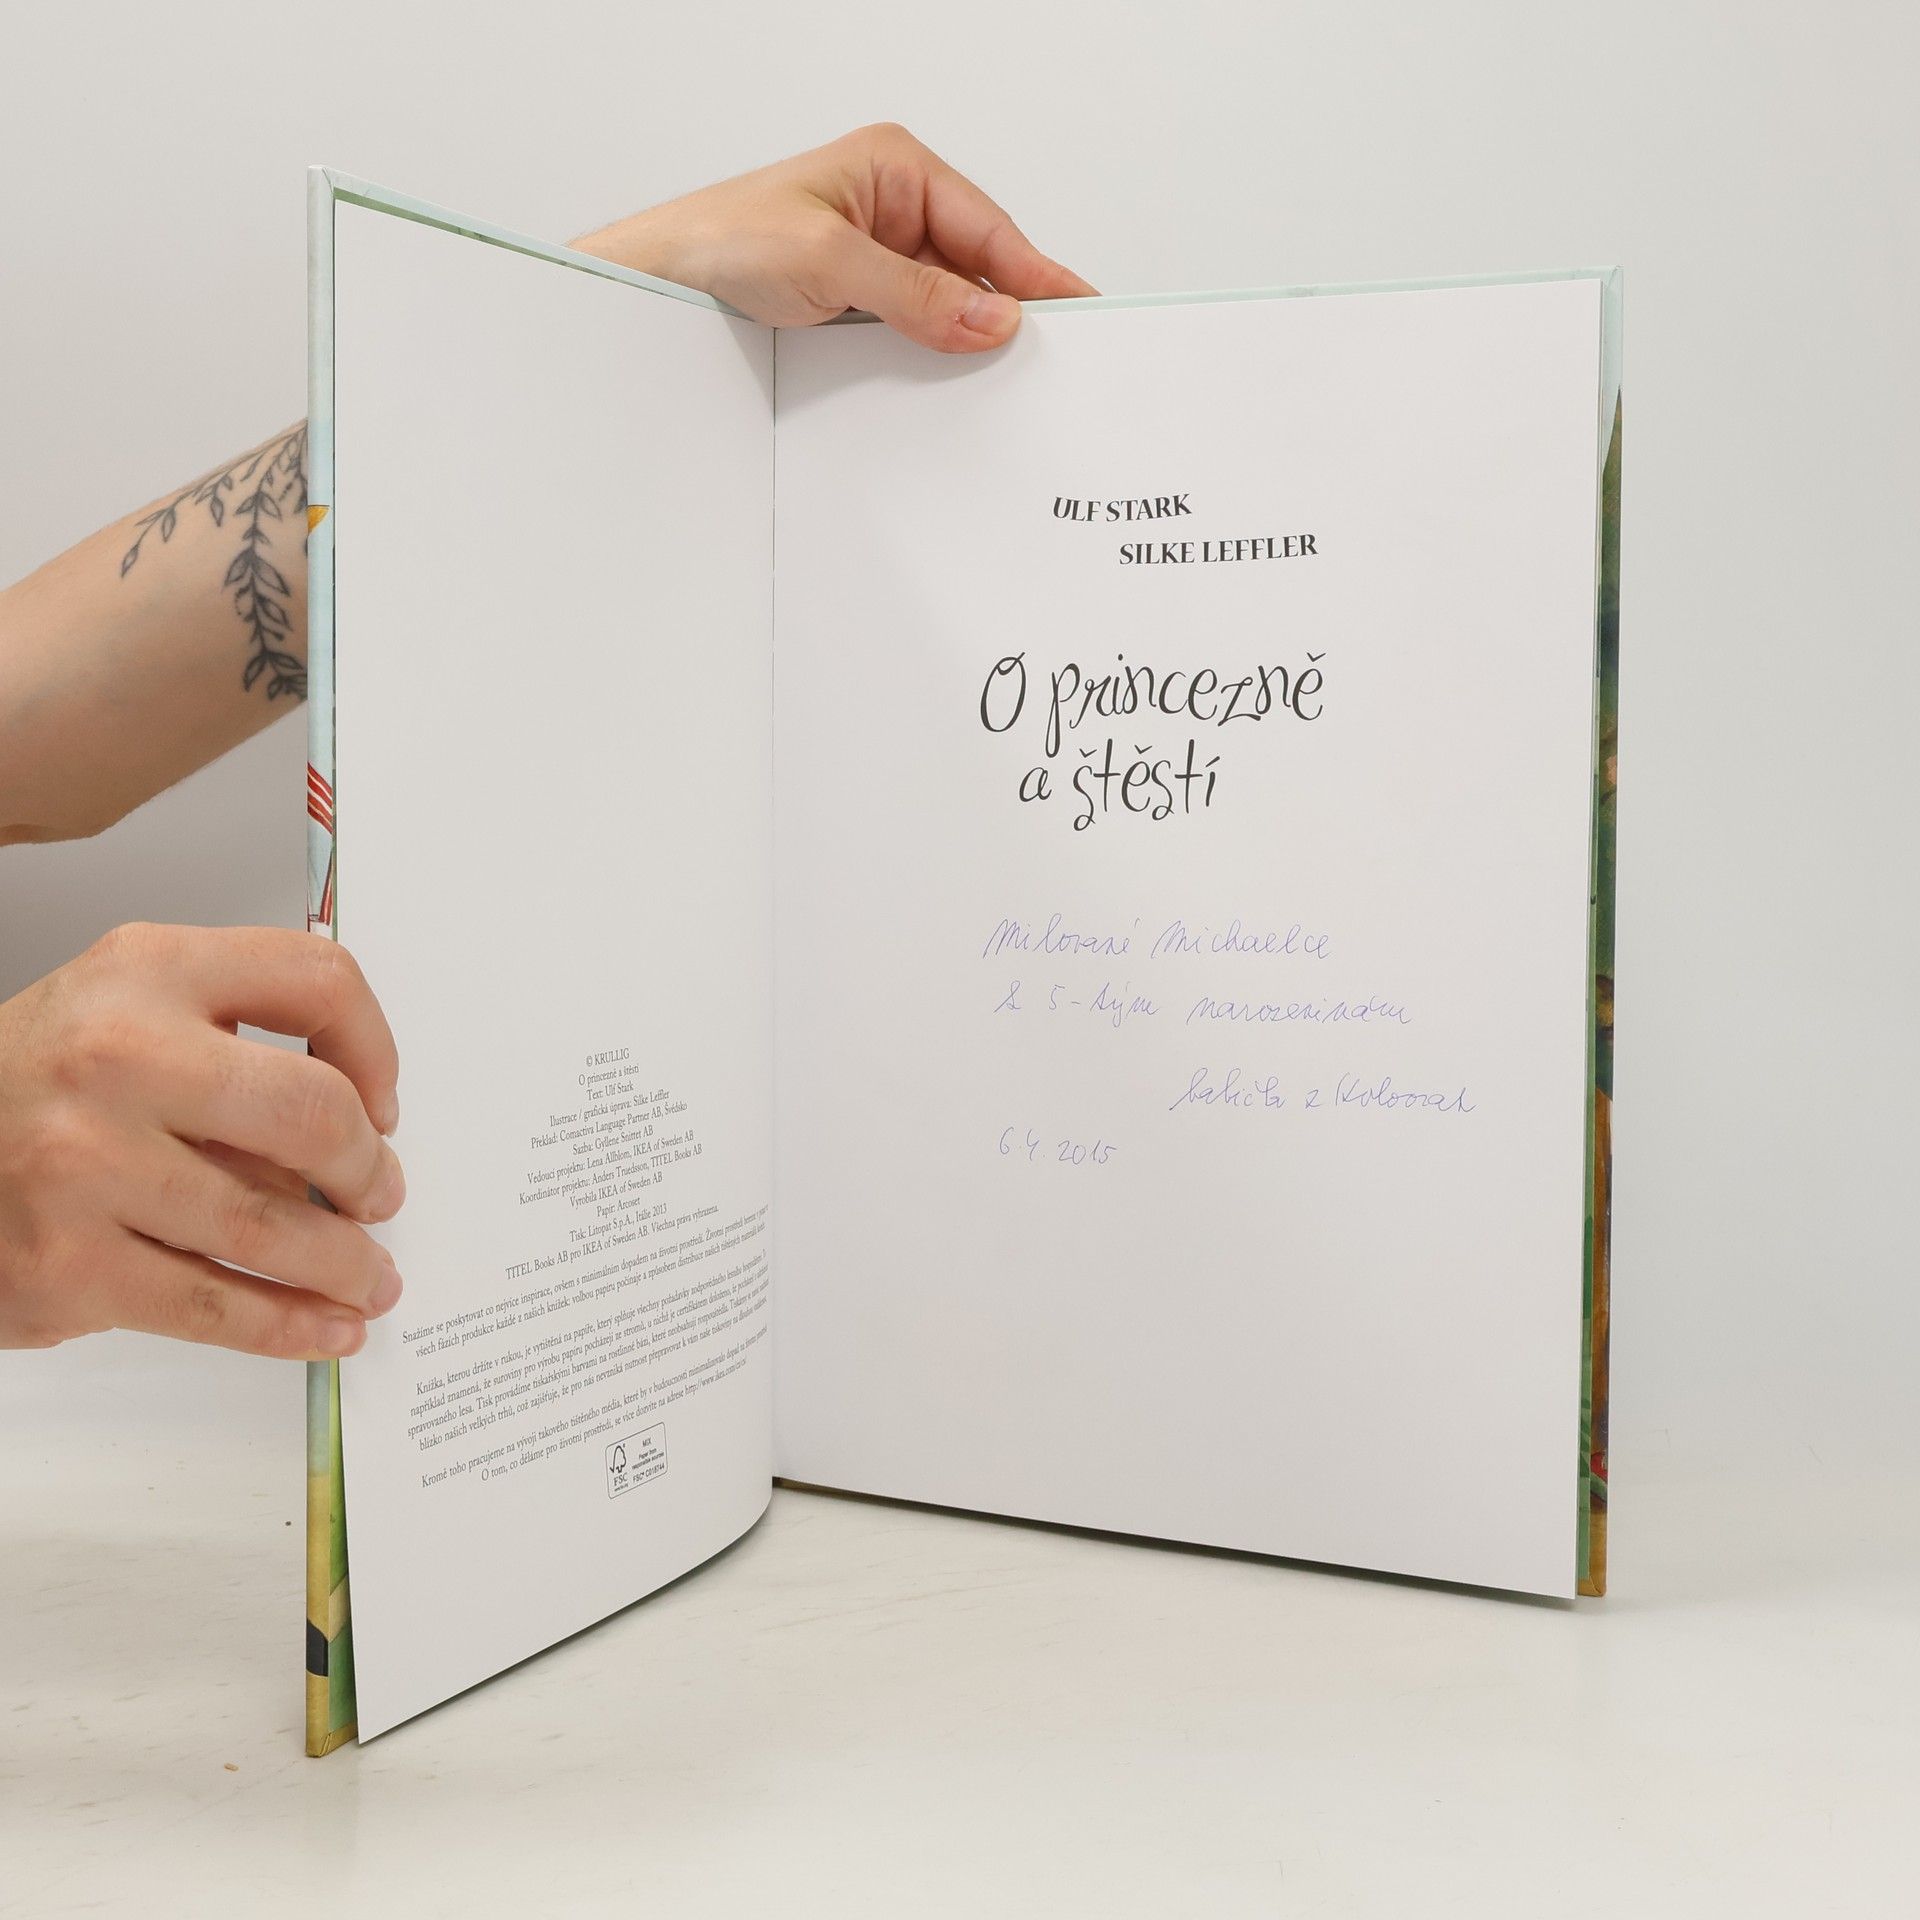 © KRULLIG
O princezně a štěstí
Text: Ulf Stark
Ilustrace / grafická úprava: Silke Leffler
Překlad: Comactiva Language Partner AB, Švédsko
Sazba: Gyllene Snittet AB
Vedoucí projektu: Lena Allblom, IKEA of Sweden AB
Koordinátor projektu: Anders Truedsson, TITEL Books AB
Vyrobila IKEA of Sweden AB
Papír: Arcoset
Tisk: Litopat S.p.A., Itálie 2013
TITEL Books AB pro IKEA of Sweden AB. Všechna práva vyhrazena.
Snažíme se poskytovat co nejvíce inspirace, ovšem s minimálním dopadem na životní prostředí. Životní prostředí bereme v
všech fázích produkce každé z našich knížek: volbou papíru počínaje a způsobem distribuce našich tištěných materiálů konče.
Knížka, kterou držíte v rukou, je vytištěná na papíře, který splňuje všechny požadavky zodpovědného lesního hospodářství. To
například znamená, že suroviny pro výrobu papíru pocházejí ze stromů, u nichž je certifikátem doloženo, že pocházejí z
spravovaného lesa. Tisk provádíme tiskařskými barvami na rostlinné bázi, které neobsahují rozpouštědla. Tiskneme
blízko našich velkých trhů, což zajišťuje, že pro nás nevzniká nutnost přepravovat k vám naše tiskoviny na dlouhou vzdálenost.
Kromě toho pracujeme na vývoji takového tištěného média, které by v budoucnosti minimalizovalo dopad na životní prostředí.
O tom, co děláme pro životní prostředí, se více dozvíte na adrese http://www.ikea.com/cz/cs/
FSC
MIX
Paper from
responsible sources
FSC® C018744
ULF STARK
SILKE LEFFLER
O princezně
a štěstí
Milované Michaelce
k 5-tým narozeninám
babička z
6.4.2015